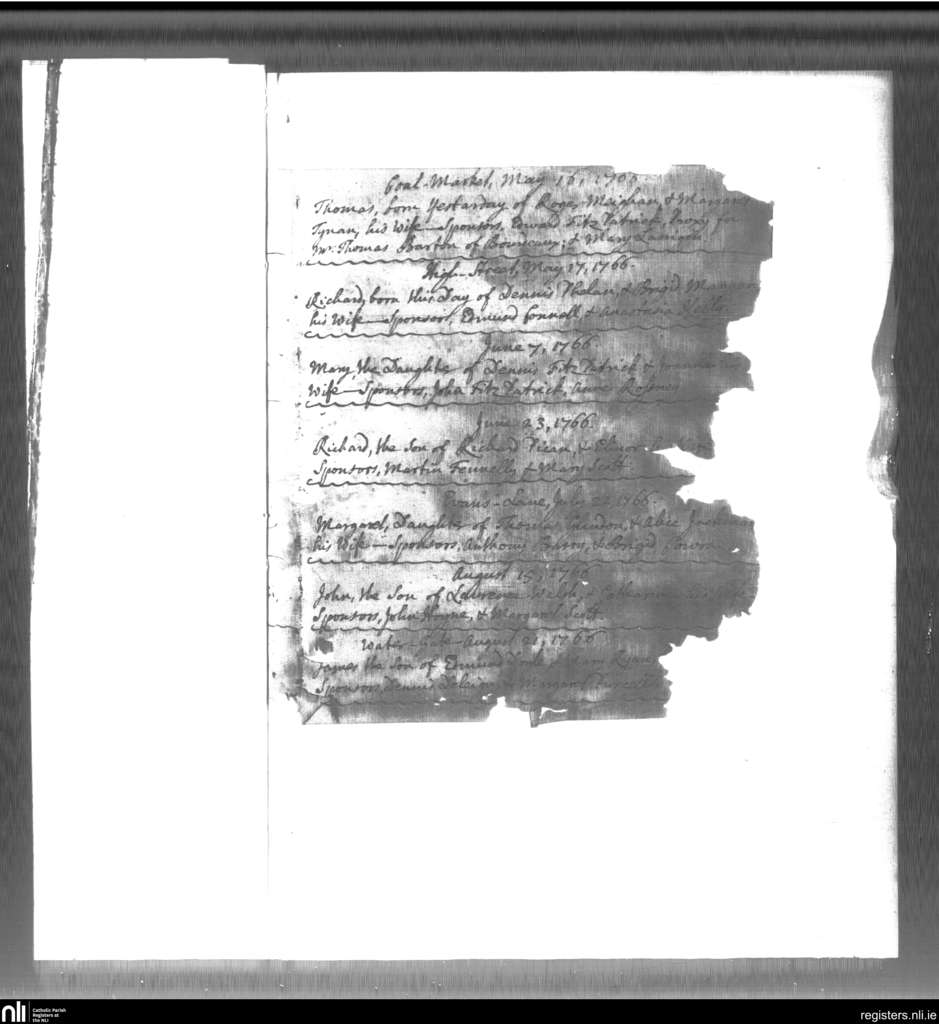 Coal-Market, May 16, 1766
Thomas, born Yesterday of Roger Meighan, & Margaret
Tynan, his Wife—Sponsors, Edward Fitz Patrick Proxy for
Mr. Thomas Barton of &
High-Street, May 17, 1766.
Richard, born this Day of Dennis Phelan, & Brigid
his Wife—Sponsors, Edmund Connell, & Anastasia
June 7, 1766
Mary, the Daughter of Dennis Fitz Patrick &
Wife—Sponsors, John Fitz Patrick,
June 23, 1766.
Richard, the Son of Richard & Elinor
Sponsors, Martin Fennelly & Mary Scott
Evans-Lane, July 1766
Margaret, Daughter of Thomas & Alice
his Wife—Sponsors, Anthony & Brigid
August 15, 1766
John, the Son of Laurence Welsh, & Catharine his Wife
Sponsors, John & Margaret Scott
Water-Gate—August 21, 1766
James the Son of Edmund & Mary Ryan
Sponsors, Dennis & Margaret
nli
Catholic Parish
Registers at
the NLI
registers.nli.ie